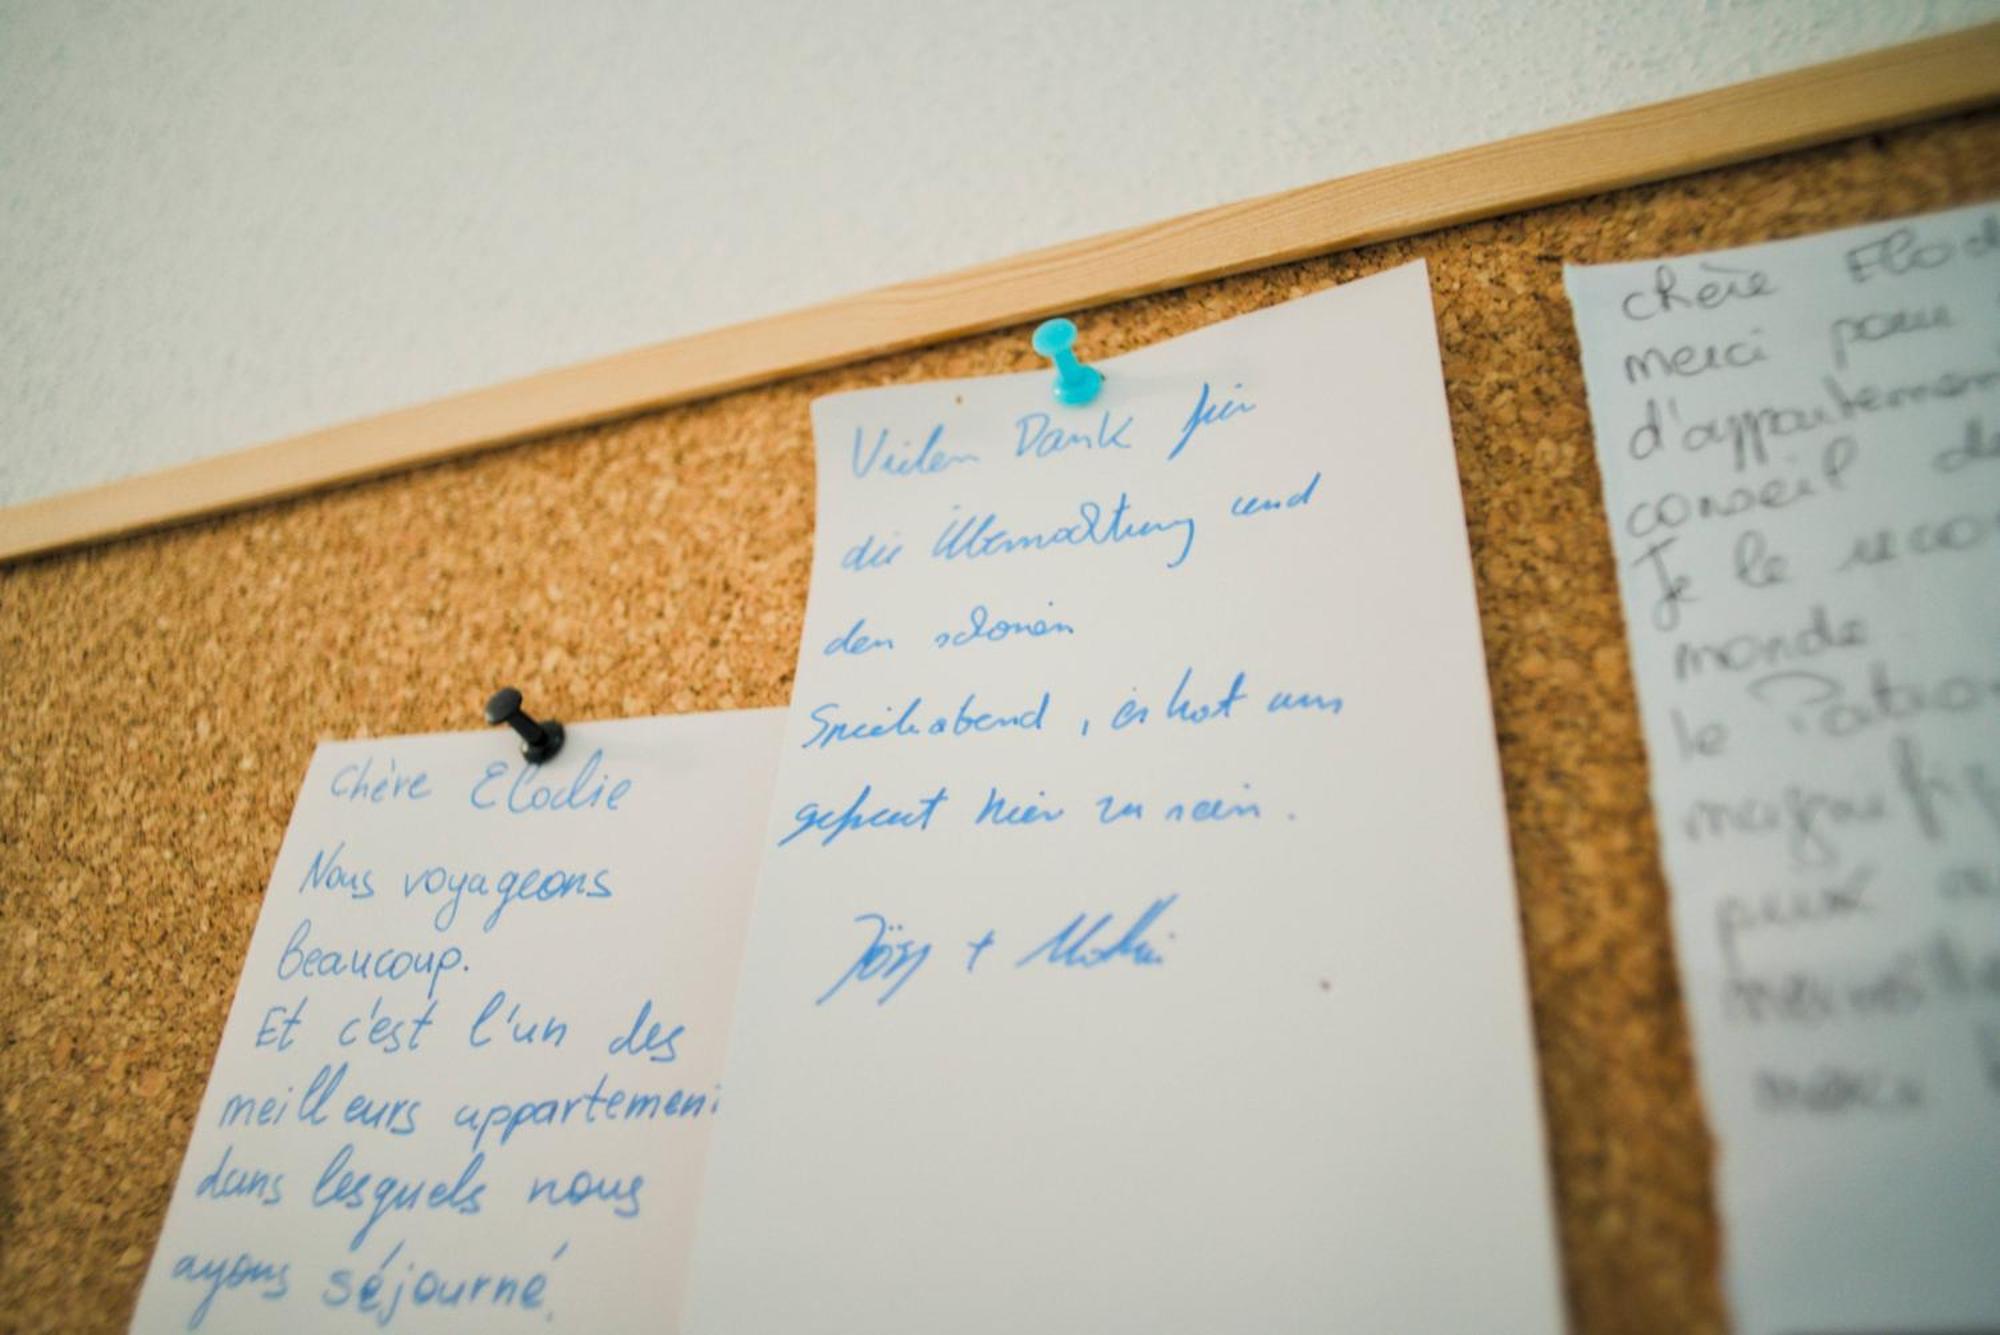 Chère Elodie
Nous voyageons
beaucoup.
Et c'est l'un des
meilleurs appartemen
dans lesquels nous
ayons séjourné.
Vielen Dank für
die Übernachtung und
den schönen
Spieleabend, es hat uns
gefreut hier zu sein.
Jörg +
chère Elod
merci pour
d'appartemen
conseil de
Je le reco
monde
le
magnifi
merci